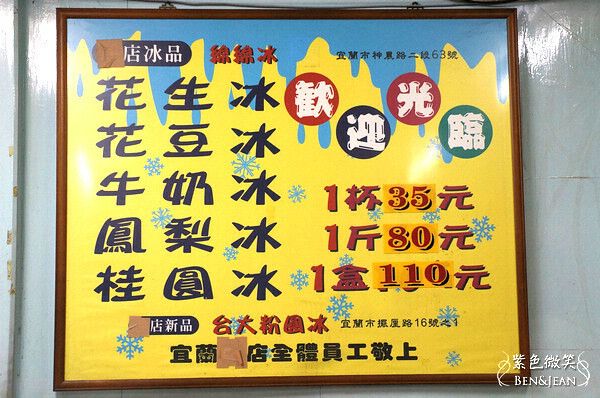 店冰品 綿綿冰 宜蘭市神農路二段63號
歡迎光臨
花生冰
花豆冰
牛奶冰
鳳梨冰
桂圓冰
1杯35元
1斤80元
1盒110元
店新品 台大粉圓冰 宜蘭市擺厘路16號之1
宜蘭 店全體員工敬上
紫色微笑
BEN&JEAN